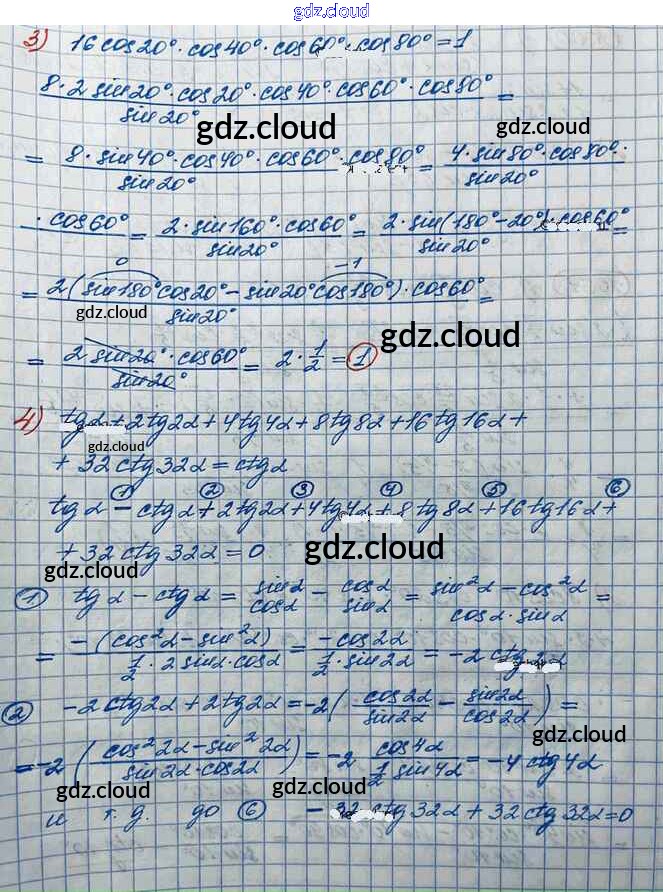 gdz.cloud
3) 16 cos20°·cos40°·cos60°·cos80°=1
8·2 sin20°·cos20°·cos40°·cos60°·cos80° / sin20° =
gdz.cloud gdz.cloud
= 8·sin40°·cos40°·cos60°·cos80° / sin20° = 4·sin80°·cos80°· / sin20°
·cos60° = 2·sin160°·cos60° / sin20° = 2·sin(180°-20°)·cos60° / sin20° =
0 -1
= 2(sin180°cos20° - sin20°cos180°)·cos60° / sin20° =
gdz.cloud gdz.cloud
= 2 sin20°·cos60° / sin20° = 2·1/2 = 1
4) tgα+2tg2α+4tg4α+8tg8α+16tg16α+
gdz.cloud
+ 32ctg32α=ctgα
① ② ③ ④ ⑤ ⑥
tgα - ctgα + 2tg2α+4tg4α+8tg8α+16tg16α+
+ 32ctg32α=0
gdz.cloud gdz.cloud
① tgα - ctgα = sinα / cosα - cosα / sinα = sin²α - cos²α / cosα·sinα =
= -(cos²α - sin²α) / 1/2·2sinα·cosα = -cos2α / 1/2·sin2α = -2ctg2α
② -2ctg2α+2tg2α=-2(cos2α / sin2α - sin2α / cos2α) =
gdz.cloud
=-2(cos²2α-sin²2α / sin2α·cos2α)=-2 cos4α / 1/2 sin4α = -4ctg4α
gdz.cloud gdz.cloud gdz.cloud
и т.д. до ⑥ -32ctg32α+32ctg32α=0